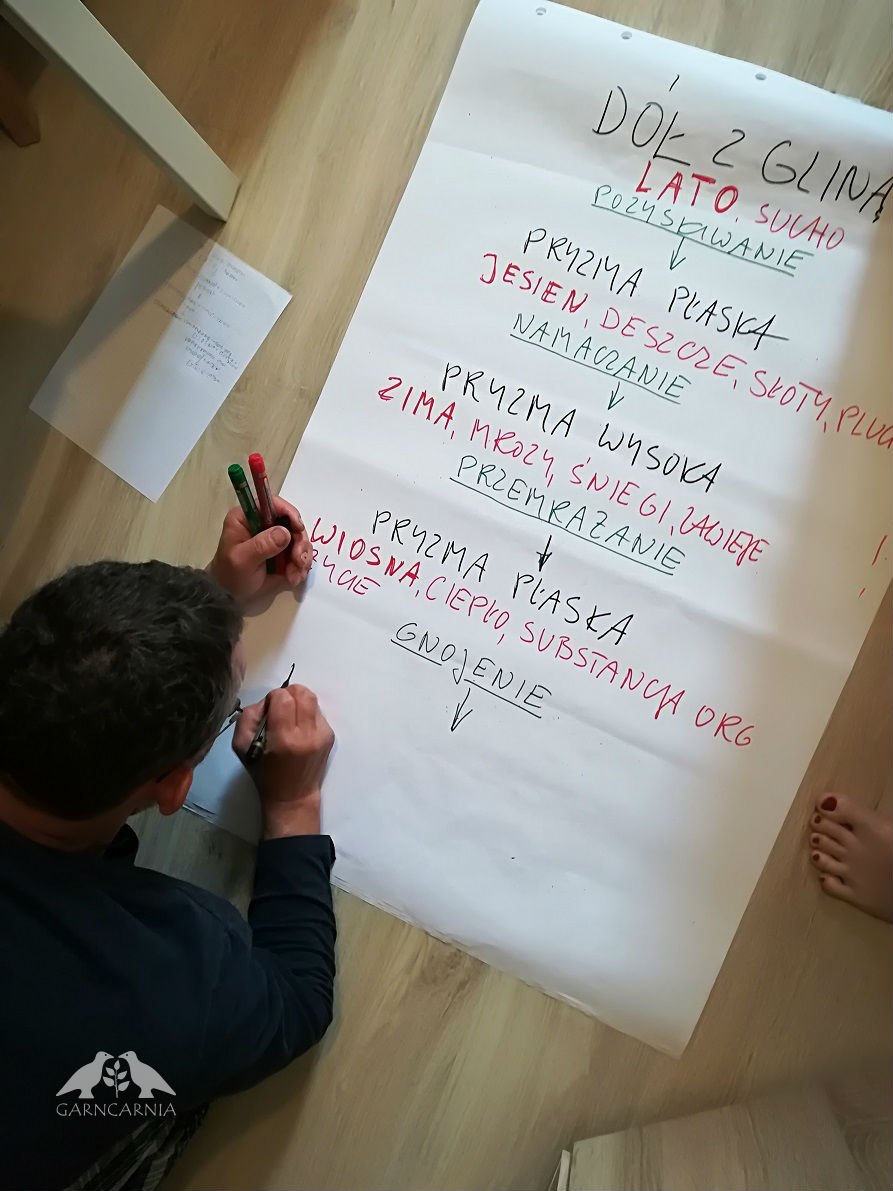 DÓŁ Z GLINĄ
LATO, SUCHO
POZYSKIWANIE
PRYZMA PŁASKA
JESIEŃ, DESZCZE, SŁOTY,
NAMACZANIE
PRYZMA WYSOKA
ZIMA, MROZY, ŚNIEGI, ZAWIEJE
PRZEMRAŻANIE
PRYZMA PŁASKA
WIOSNA, CIEPŁO, SUBSTANCJA ORG
ŻYCIE
GNOJENIE
GARNCARNIA